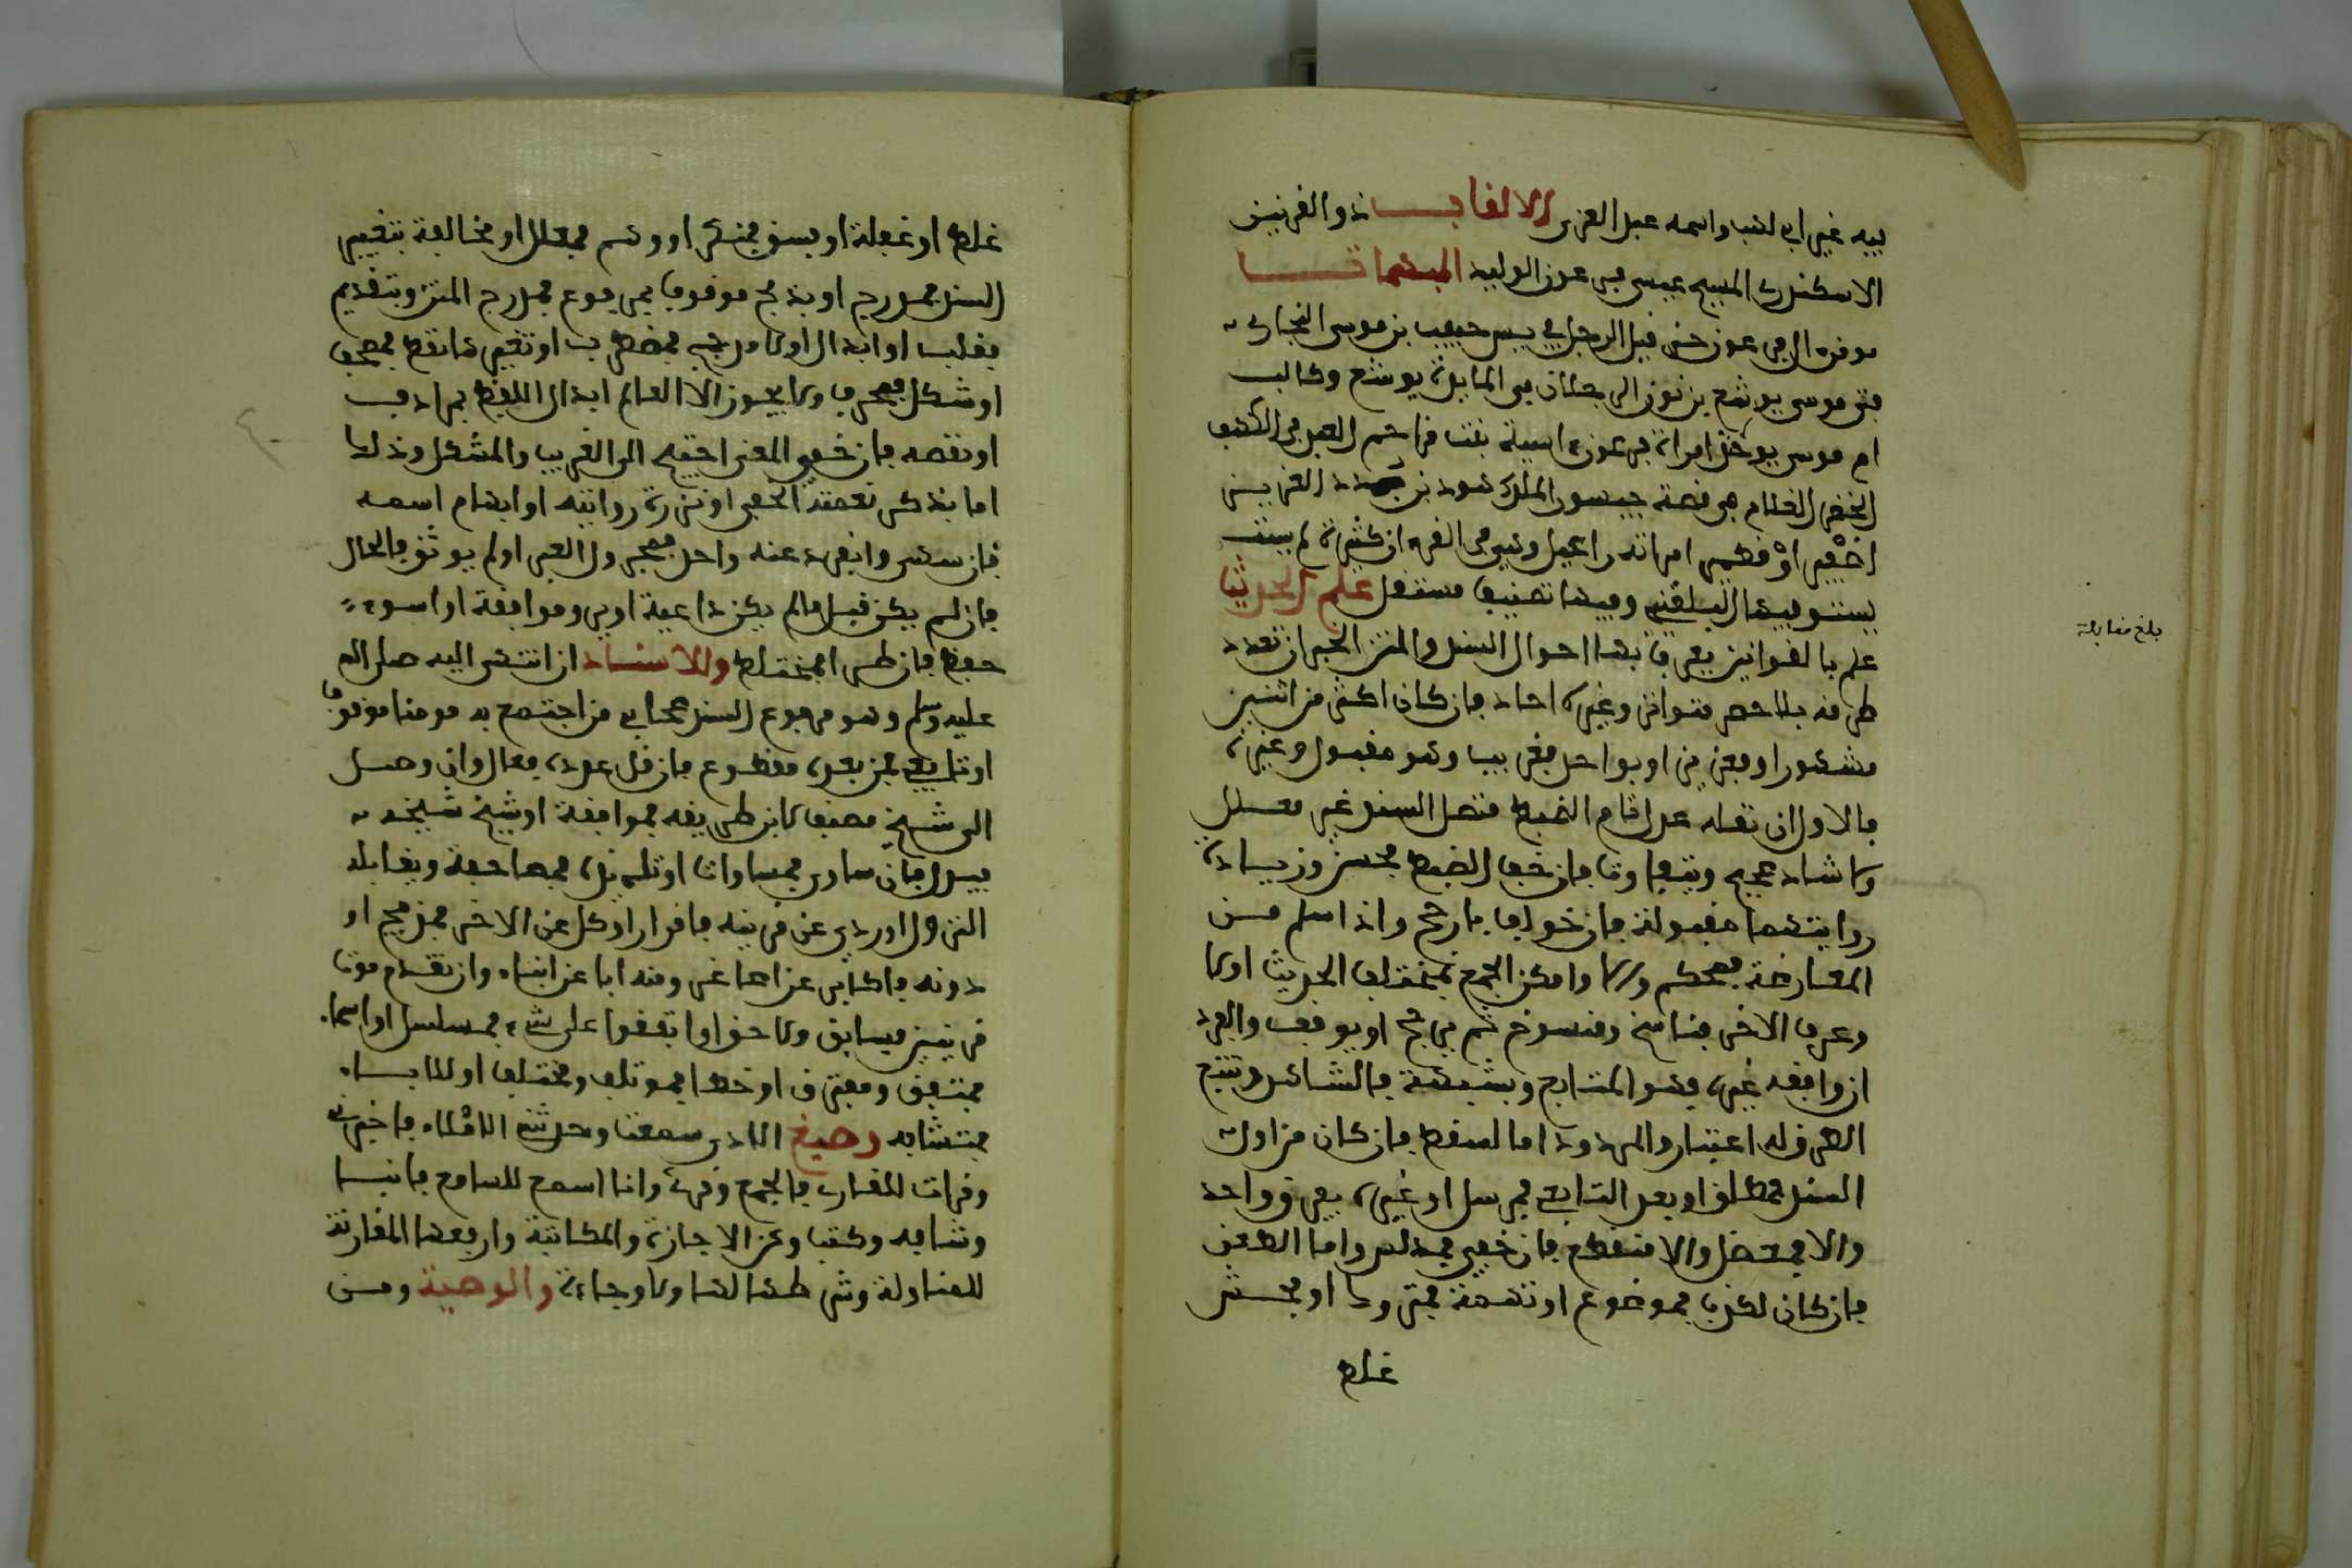 فيه غير أبي لهب واسمه عبد العزى الالقاب ذو القرنين
الاسكندر المسيح عيسى فرعون الوليد المبهمات
مومن ال فرعون حزقيل الرجل في يس حبيب بن موسى النجار
فتى موسى يوشع بن نون الرجلان في المايدة يوشع وكالب
ام موسى يوحانذ امراة فرعون اسية بنت مزاحم العبد في الكهف
الخضر الغلام في قصة جيسور الملك هدد بن بدد العزيز
اطفير او قطفير امراته راعيل وهي في القرءان كثيرة لم يستوف
يستوفيها البلقيني وفيها تصنيف مستقل علم الحديث
علم بالقوانين يعرف بها احوال السند والمتن الخبر ان تعدد
طرقه بلا حصر متواتر وغيره احاد فان كان اكثر من اثنين
مشهور او فعزيز او بواحد فغريب وهو مقبول وغيره
فالاول ان نقله عدل تام الضبط متصل السند غير معلل
ولا شاذ صحيح ويتفاوت فان خف الضبط فحسن وزيادة
روايتهما مقبولة فان خولف بارجح واذا سلم من
المعارضة فمحكم ولا وامكن الجمع فمختلف الحديث اولا
وعرف الاخر فناسخ ومنسوخ ثم يرجح او يوقف والفرد
ان وافقه غيره فهو المتابع ويشبهه فالشاهد وتتبع
الطرق له اعتبار والمردود اما لسقط فان كان من اول
السند فمعلق او بعد التابعي فمرسل او غيره بفوق واحد
ولاء فمعضل والا منقطع فان خفي فمدلس واما الطعن
فان كان لكذب فموضوع او تهمته فمتروك او فحش
غلط
بلغ مقابلة
غلط او غفلة او فسق فمنكر او وهم فمعلل او مخالفة بتغيير
السند فمدرج او بدمج موقوف بمرفوع فمدرج المتن وبتقديم
فقلب او ابدال ولا مرجح فمضطرب او تغيير نقط فمصحف
او شكل فمحرف ولا يجوز الا لعالم ابدال اللفظ بمرادف
او نقصه فان خفي المعنى احتيج الى الغريب والمشكل وذلك
اما بذكر نعته الخفي او ندرة روايته او ابهام اسمه
فان سمي وانفرد عنه واحد فمجهول العين او لم يوثق فالحال
فان لم يكن قبل ما لم يكن داعية او يرو موافقه او لسوء
حفظ فان طرا فمختلط والاسناد ان انتهى اليه صلى الله
عليه وسلم وهو مرفوع المسند صحابي من اجتمع به مومنا موقوف
او تابعي فمن بعده مقطوع فان قل عدده فعال وان وصل
الى شيخ مصنف لا من طريقه فموافقة او شيخ شيخه
فبدل فان ساوى فمساواة او تلميذه فمصافحة ويقابله
النزول او روى عن قرينه فاقران او كل عن الاخر فمدبج او
دونه فاكابر عن اصاغر ومنه ابا عن ابناء وان تقدم موت
قرينين فسابق ولاحق او اتفقوا على شيء فمسلسل او اسما
فمتفق ومفترق او خطا فموتلف ومختلف او الابا
فمتشابه وصيغ الاداء سمعت وحدثني الاملاء فاخبرني
وقرات للقارى فالجمع وقرئ وانا اسمع للسامع فانبا
وشافه وكتب وعن الاجازة والمكاتبة وارفعها المقارنة
للمناولة وشرطت لها ولا وجادة والوصية ومن